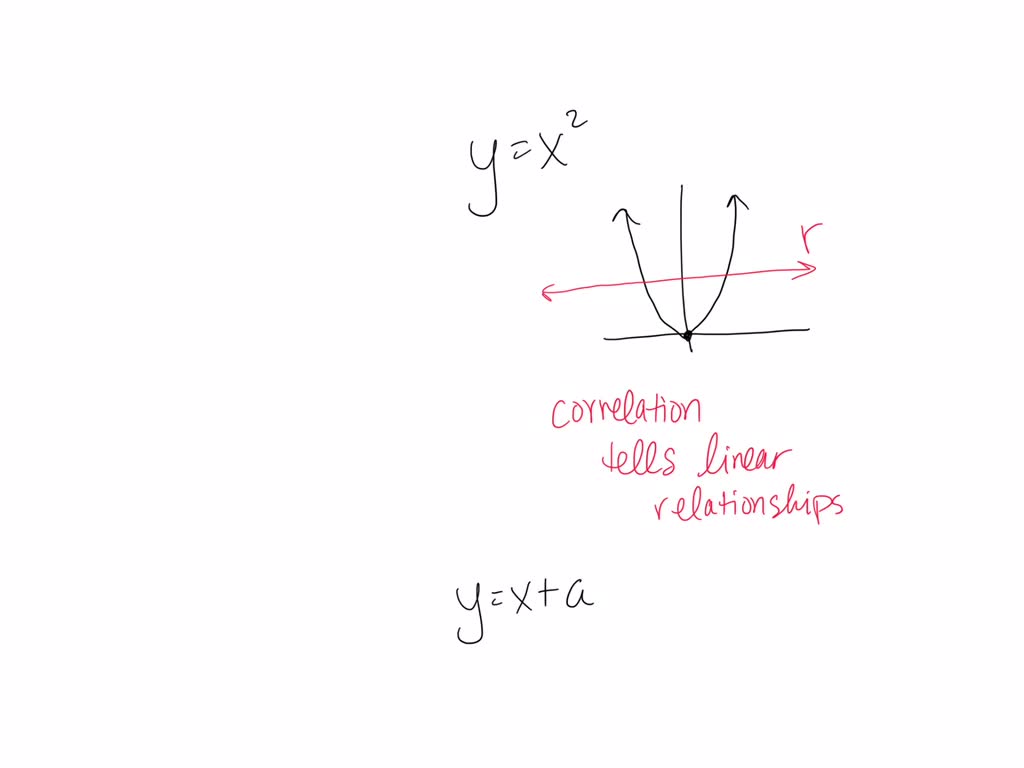 y=x²
r
correlation
tells linear
relationships
y=x+a